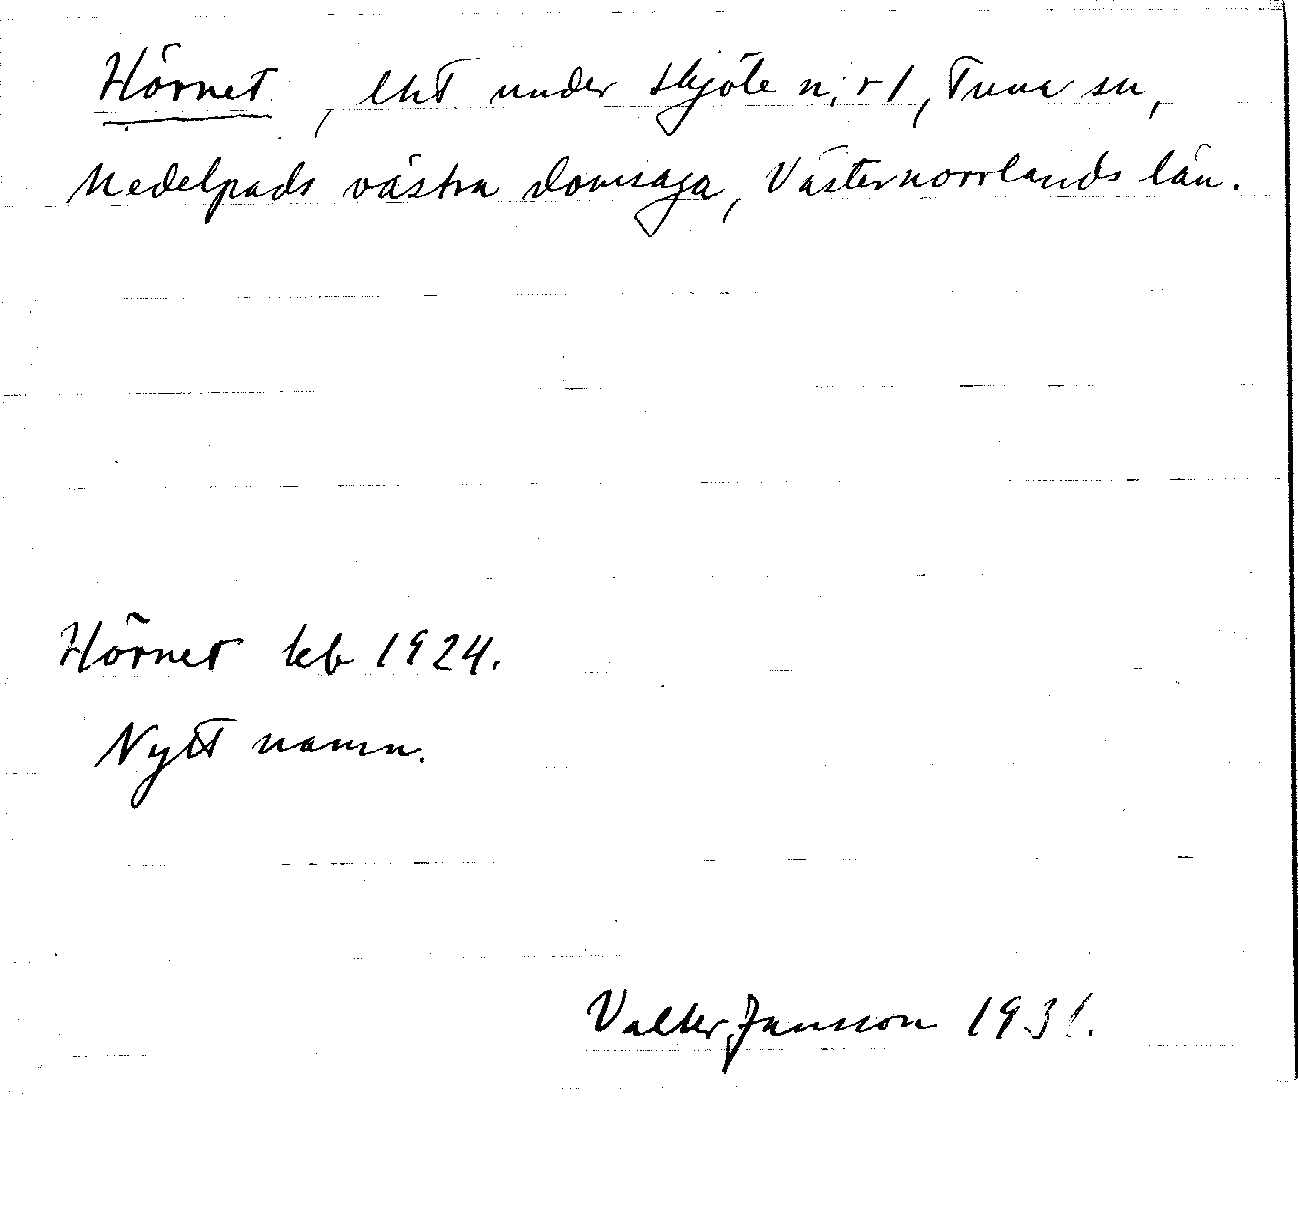 Hörnet, lht under Skjöle n:r 1, Tuna sn,
Medelpads västra domsaga, Västernorrlands län.
Hörnet kb 1924.
Nytt namn.
Valter Jansson 1931.